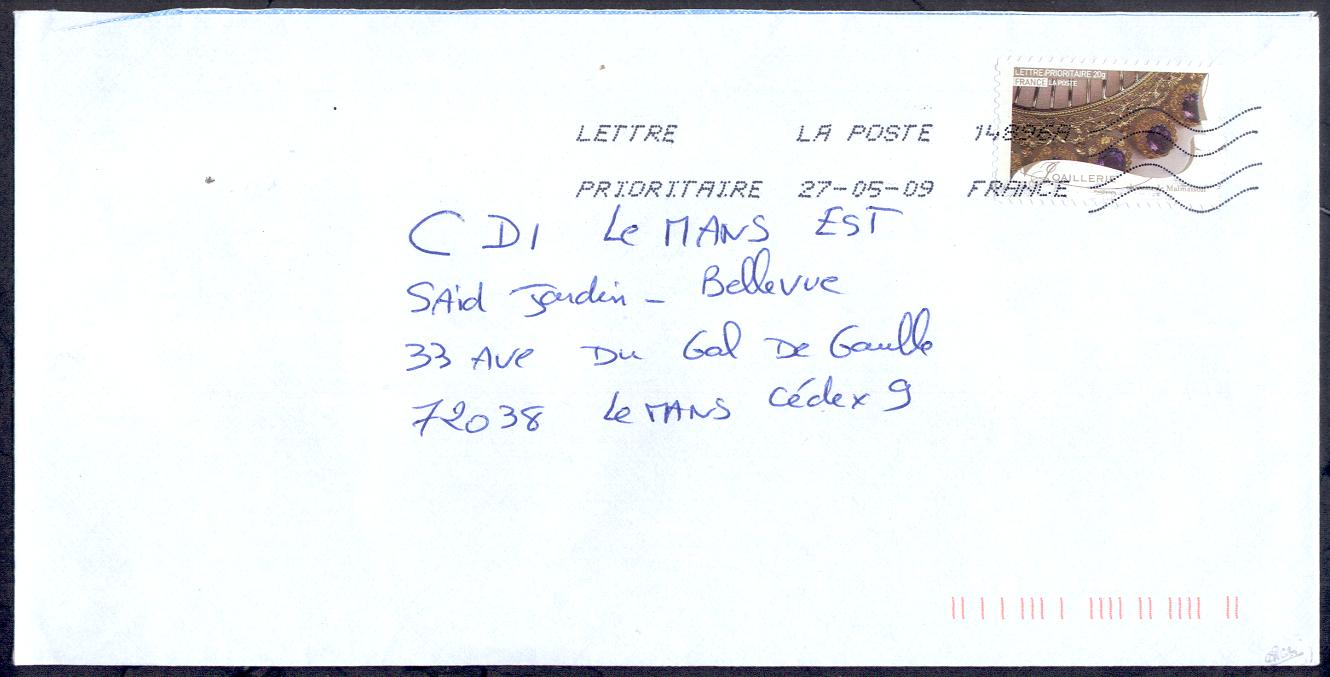 LETTRE PRIORITAIRE 20g
FRANCE LA POSTE
LETTRE LA POSTE 14896A
PRIORITAIRE 27-05-09 FRANCE
JOAILLERIE
CDI Le MANS EST
SAid Jardin - Bellevue
33 Ave Du Gal De Gaulle
72038 Le MANS Cédex 9